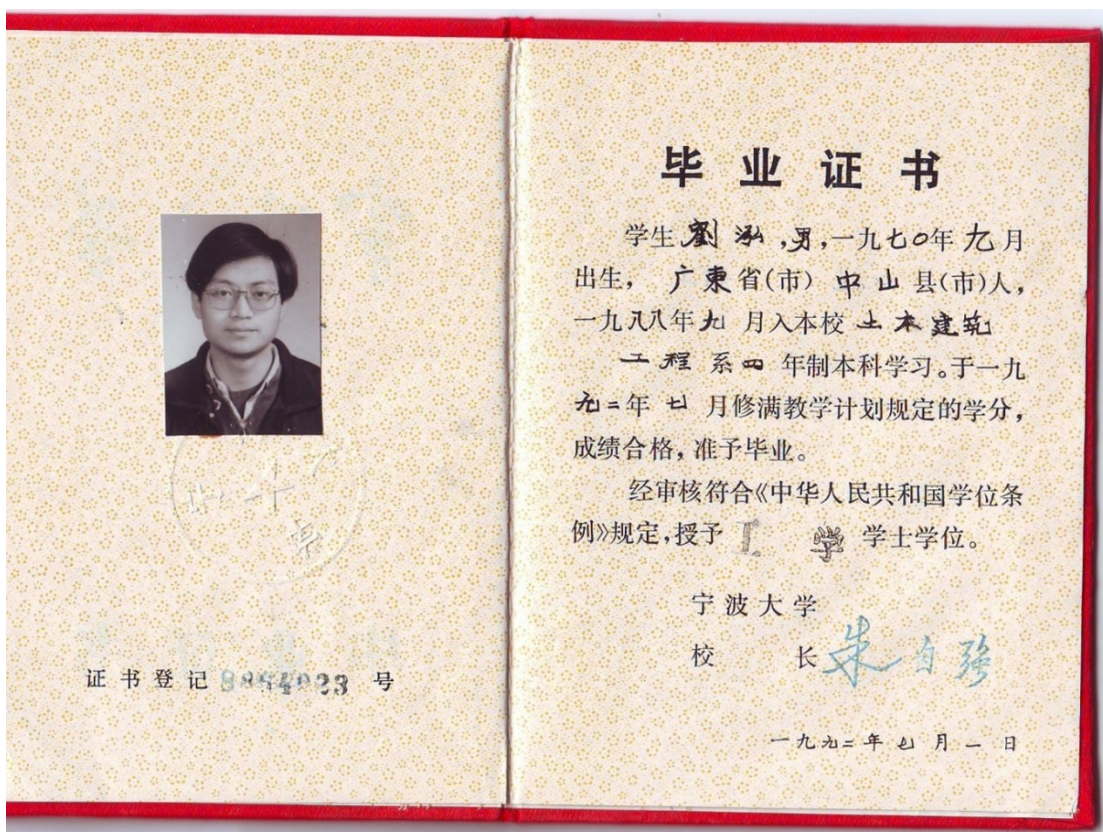 证书登记 8864023 号
毕业证书
学生 劉泓,男,一九七〇年九月
出生, 广東省(市) 中山 县(市)人,
一九八八年九 月入本校 土木建筑
工程系四 年制本科学习。于一九
九二年 七 月修满教学计划规定的学分,
成绩合格,准予毕业。
经审核符合《中华人民共和国学位条
例》规定,授予 工 学 学士学位。
宁波大学
校 长 朱自强
一九九二年七月一日